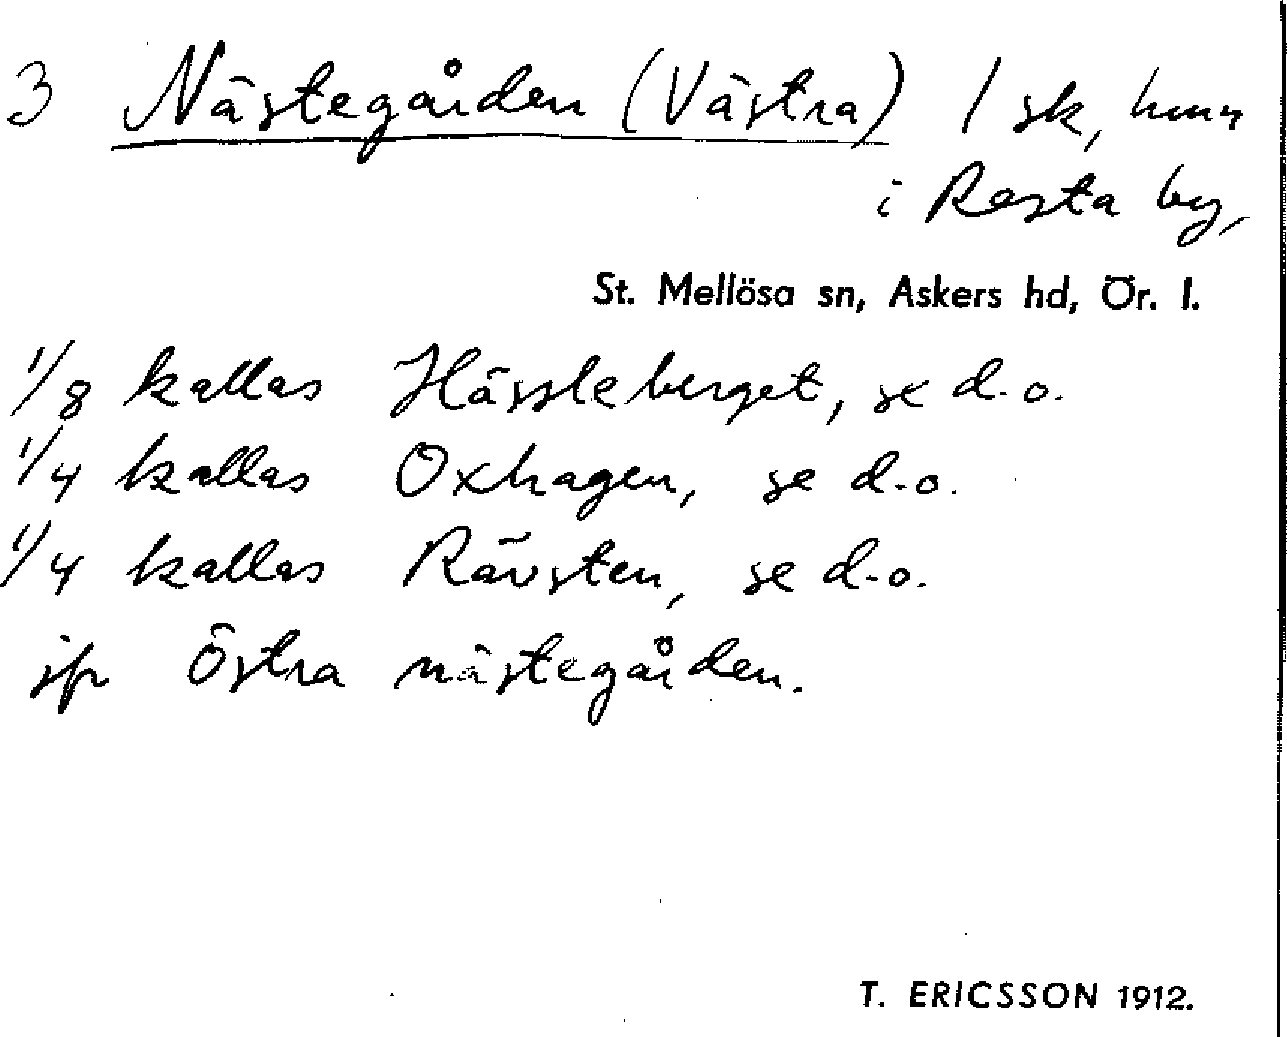 3 Nästegården (Västra) 1 sk, hmn
i Resta by,
St. Mellösa sn, Askers hd, Ör. l.
1/8 kallas Hässleberget, se d.o.
1/4 kallas Oxhagen, se d.o.
1/4 kallas Rävsten, se d.o.
jfr Östra nästegården.
T. ERICSSON 1912.